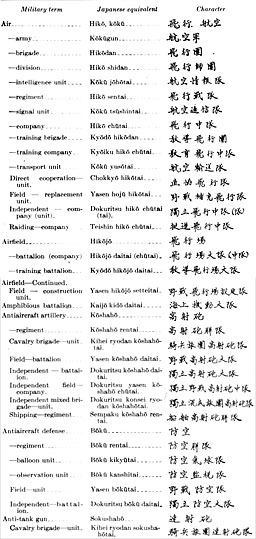 Military term Japanese equivalent Character
Air Hikō, kōkū 飛行 航空
—army Kōkūgun 航空軍
—brigade Hikōdan 飛行團
—division Hikō shidan 飛行師團
—intelligence unit Kōkū jōhōtai 航空情報隊
—regiment Hikō sentai 飛行戰隊
—signal unit Kōkū tsūshintai 航空通信隊
—company Hikō chūtai 飛行中隊
—training brigade Kyōdō hikōdan 教導飛行團
—training company Kyōiku hikō chūtai 教育飛行中隊
—transport unit Kōkū yusōtai 航空輸送隊
Direct cooperation—unit. Chokkyō hikōtai 直協飛行隊
Field — replacement unit. Yasen hojū hikōtai 野戰補充飛行隊
Independent — company (unit). Dokuritsu hikō chūtai (tai). 獨立飛行中隊(隊)
Raiding—company Teishin hikō chūtai 挺進飛行中隊
Airfield Hikōjō 飛行場
—battalion (company) Hikōjō daitai (chūtai) 飛行場大隊(中隊)
—training battalion Kyōdō hikōjō daitai 教導飛行場大隊
Airfield—Continued.
Field — construction unit. Yasen hikōjō setteitai 野戰飛行場設定隊
Amphibious battalion Kaijō kidō daitai 海上機動大隊
Antiaircraft artillery Kōshahō 高射砲
—regiment Kōshahō rentai 高射砲聯隊
Cavalry brigade—unit Kihei ryodan kōshahōtai. 騎兵旅團高射砲隊
Field—battalion Yasen kōshahō daitai 野戰高射砲大隊
Independent — battalion. Dokuritsu kōshahō daitai. 獨立高射砲大隊
Independent field — company. Dokuritsu yasen kōshahō chūtai. 獨立野戰高射砲中隊
Independent mixed brigade—unit. Dokuritsu konsei ryodan kōshahōtai. 獨立混成旅團高射砲隊
Shipping—regiment Sempaku kōshahō rentai. 船舶高射砲聯隊
Antiaircraft defense Bōkū 防空
—regiment Bōkū rentai 防空聯隊
—balloon unit Bōkū kikyūtai 防空氣球隊
—observation unit Bōkū kanshitai 防空監視隊
Field—unit Yasen bōkūtai 野戰防空隊
Independent—battalion. Dokuritsu bōkū daitai 獨立防空大隊
Anti-tank gun Sokushahō 速射砲
Cavalry brigade—unit Kihei ryodan sokushahōtai. 騎兵旅團速射砲隊